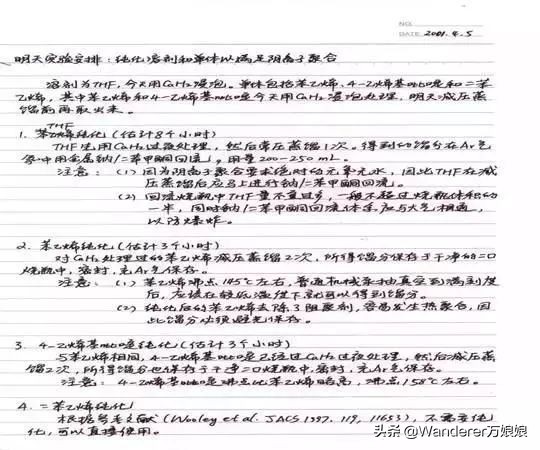 NO.
DATE 2001.4.5
明天实验安排：纯化溶剂和单体以满足阴离子聚合
溶剂为THF，今天用CaH₂浸泡。单体包括苯乙烯、4-乙烯基吡啶和二苯
乙烯，其中苯乙烯和4-乙烯基吡啶今天用CaH₂浸泡处理，明天减压蒸
馏前再取出来。
1. THF纯化（估计8个小时）
THF先用CaH₂过夜处理，然后常压蒸馏1次。得到的馏分在Ar气
氛中用金属钠/二苯甲酮回流，用量200-250mL。
注意：（1）因为阴离子聚合要求绝对的无氧无水，因此THF在减
压蒸馏后应马上进行钠/二苯甲酮回流。
（2）回流烧瓶中THF量不宜过多，一般不超过烧瓶体积的
一半，同时钠/二苯甲酮回流体系应与大气相通，
以防爆炸。
2. 苯乙烯纯化（估计3个小时）
对CaH₂处理过的苯乙烯减压蒸馏2次，所得馏分保存于干净的二口
烧瓶中，密封，充Ar气保存。
注意：（1）苯乙烯沸点145℃左右，普通机械泵抽真空到满刻度
后，应该在较低温度下就可以得到馏分。
（2）纯化后的苯乙烯去除了阻聚剂，容易发生热聚合，因
此馏分必须避光保存。
3. 4-乙烯基吡啶纯化（估计3个小时）
与苯乙烯相同，4-乙烯基吡啶已经过CaH₂过夜处理，然后减压蒸
馏2次，所得馏分也保存于干净二口烧瓶中，密封，充Ar气保存。
注意：4-乙烯基吡啶沸点比苯乙烯略高，沸点158℃左右。
4. 二苯乙烯纯化
根据参考文献（Wooley et al. JACS 1997, 119, 11653），不需要纯
化，可以直接使用。
头条 @Wanderer万娘娘